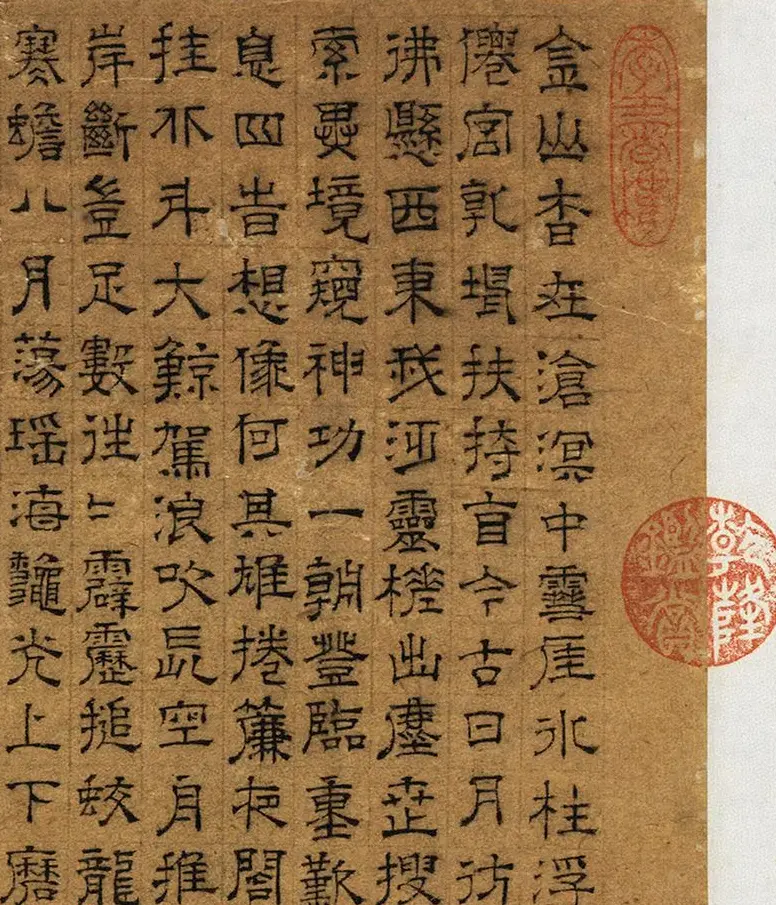 金山杳在滄溟中雪厓冰柱浮
僊宮乾坤扶持自今古日月彷
彿懸西東我泛靈槎出塵世搜
索異境窺神功一朝登臨重歎
息四時想像何其雄捲簾夜閣
挂北斗大鯨駕浪吹長空舟摧
岸斷豈足數往〻霹靂搥蛟龍
寒蟾八月蕩瑤海龝光上下磨
乾隆鑑賞